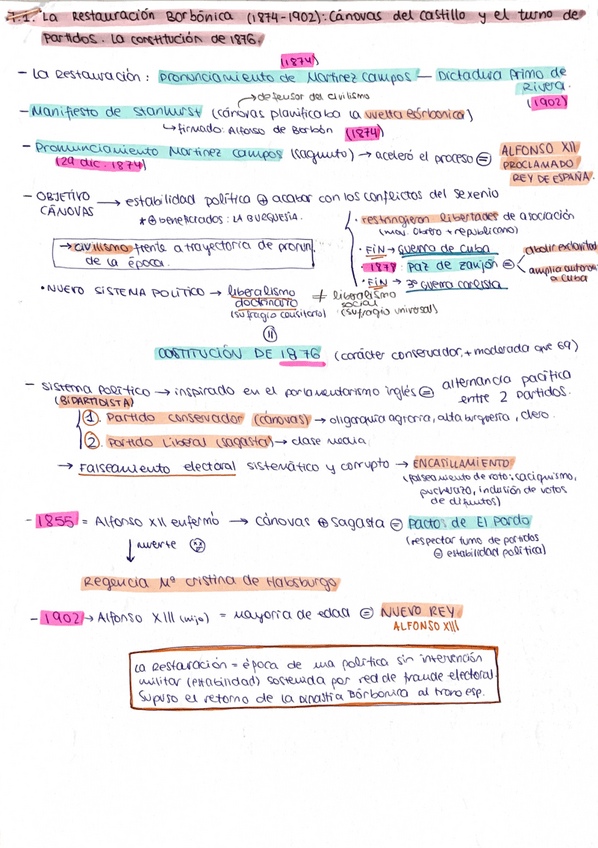 7.1. La Restauración Borbónica (1874-1902): Cánovas del Castillo y el turno de
Partidos. La constitución de 1876.
(1874)
- La Restauración: Pronunciamiento de Martínez Campos — Dictadura Primo de
Rivera.
(1902)
→ defensor del civilismo
- Manifiesto de Standhurst (cánovas planificaba la vuelta Borbónica)
↳ firmado: Alfonso de Borbón (1874)
- Pronunciamiento Martínez Campos (Sagunto) → aceleró el proceso = ALFONSO XII
(29 dic. 1874)
PROCLAMADO
REY DE ESPAÑA.
- OBJETIVO → estabilidad política ⊕ acabar con los conflictos del Sexenio
CÁNOVAS
*⊕ beneficiados: LA BUGUESÍA.
· restringieron libertades de asociación
(mov. obrero + republicano)
→ civilismo frente a trayectoria de pronun.
de la época.
· FIN → Guerra de Cuba
· 1878: Paz de Zanjón =
abolir esclavitud
amplia autonom. a Cuba
· FIN → 3ª Guerra carlista
· NUEVO SISTEMA POLÍTICO → liberalismo ≠ liberalismo
doctrinario social
(sufragio censitario) (sufragio universal)
=
COSTITUCIÓN DE 1876 (carácter conservador, + moderada que 69)
- Sistema Político → inspirado en el parlamentarismo inglés = alternancia pacífica
(BIPARTIDISTA)
entre 2 partidos.
1. Partido Conservador (cánovas) → oligarquía agraria, alta burguesía, clero.
2. Partido Liberal (Sagasta) → clase media
→ Falseamiento electoral sistemático y corrupto → ENCASILLAMIENTO
(falseamiento de voto: caciquismo,
pucherazo, inclusión de votos
de difuntos)
- 1855 = Alfonso XII enfermó → cánovas ⊕ Sagasta = Pacto de El Pardo
↓ muerte
(respectar turno de partidos
= estabilidad política)
Regencia Mª Cristina de Habsburgo
- 1902 → Alfonso XIII (hijo) = mayoría de edad = NUEVO REY
ALFONSO XIII
La Restauración = época de una política sin intervención
militar (estabilidad) sostenida por red de fraude electoral.
Supuso el retorno de la Dinastía Bórbonica al trono esp.